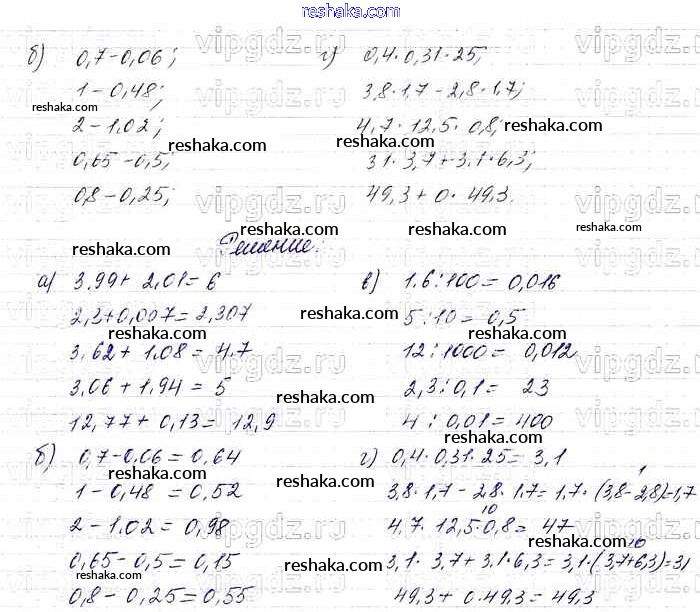 reshaka.com
б) 0,7-0,06; г) 0,4·0,31·25;
1-0,48; 3,8·1,7-2,8·1,7;
reshaka.com
2-1.02; 4,7·12,5·0,8; reshaka.com
reshaka.com
0,65-0,5; 31·3,7+3.1·6,3;
0,8-0,25; 49,3+0·49,3.
reshaka.com
Решение:
reshaka.com reshaka.com
а) 3.99+2.01=6 в) 1.6:100=0,016
2,3+0,007=2,307 5:10=0,5
reshaka.com
reshaka.com
3,62+1.08=4.7 12:1000=0,012
reshaka.com
3,06+1,94=5 2,3:0,1=23
reshaka.com
12,77+0,13=12,9 4:0,01=400
reshaka.com
б) 0,7-0,06=0,64 г) 0,4·0,31·25=3,1
reshaka.com
1
1-0,48=0,52 3,8·1,7-2,8·1.7=1,7·(3,8-2,8)=1,7
reshaka.com
10
2-1.02=0,98 4,7·12,5·0,8=47
reshaka.com
10
0,65-0,5=0,15 3,1·3,7+3,1·6,3=3,1·(3,7+6,3)=31
reshaka.com
reshaka.com
0,8-0,25=0,55 49,3+0·49,3=49,3
vipgdz.ru vipgdz.ru vipgdz.ru
vipgdz.ru vipgdz.ru vipgdz.ru
vipgdz.ru vipgdz.ru vipgdz.ru
vipgdz.ru vipgdz.ru vipgdz.ru
vipgdz.ru vipgdz.ru vipgdz.ru
vipgdz.ru vipgdz.ru vipgdz.ru